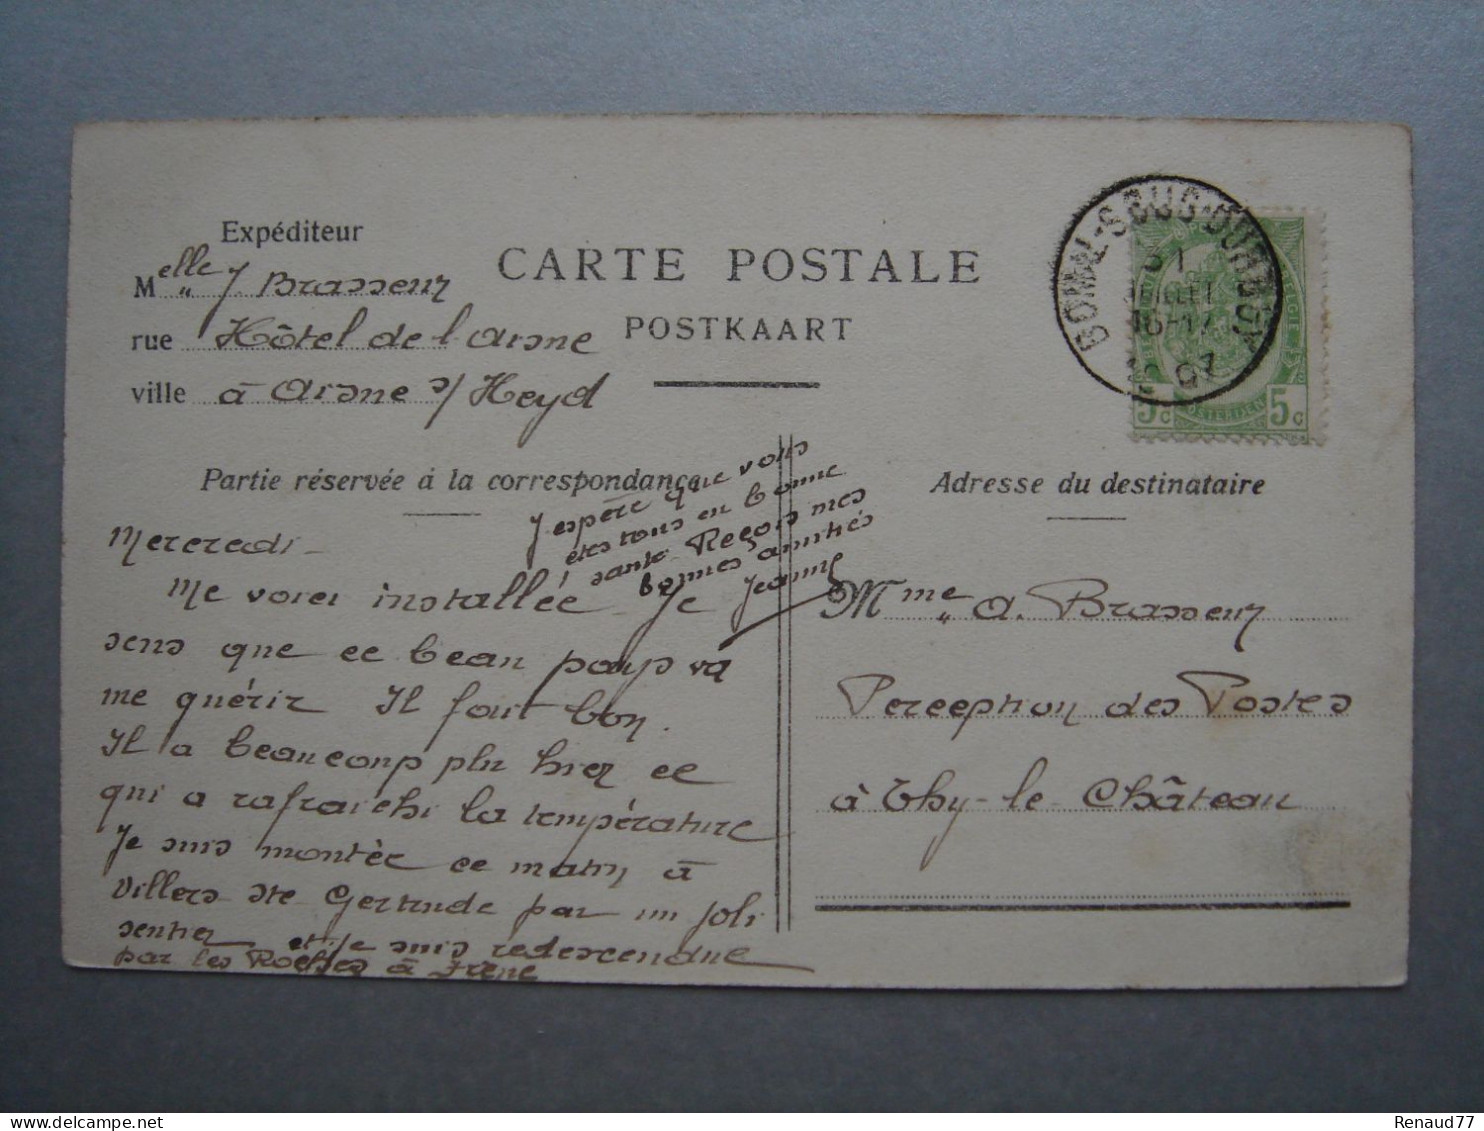 Expéditeur
Melle J Brasseur
rue Hôtel de l'Aisne
ville à Aisne s/ Heyd
CARTE POSTALE
POSTKAART
BOMAL-SOUS-DURBUY
31
JUILLET
16-17
07
5c 5c
Partie réservée à la correspondance
Adresse du destinataire
Mercredi -
Me voici installée Je
sens que ce beau pays va
me guérir Il fait bon.
Il a beaucoup plu hier ce
qui a rafraichi la température
Je suis montée ce matin à
Villers Ste Gertrude par un joli
sentier et je suis redescendue
par les Roches à Frêne
J'espère que vous
êtes tous en bonne
santé Reçois mes
bonnes amitiés
Jeanne
Mme A. Brasseur
Perception des Postes
à Thy-le-Château
Renaud77